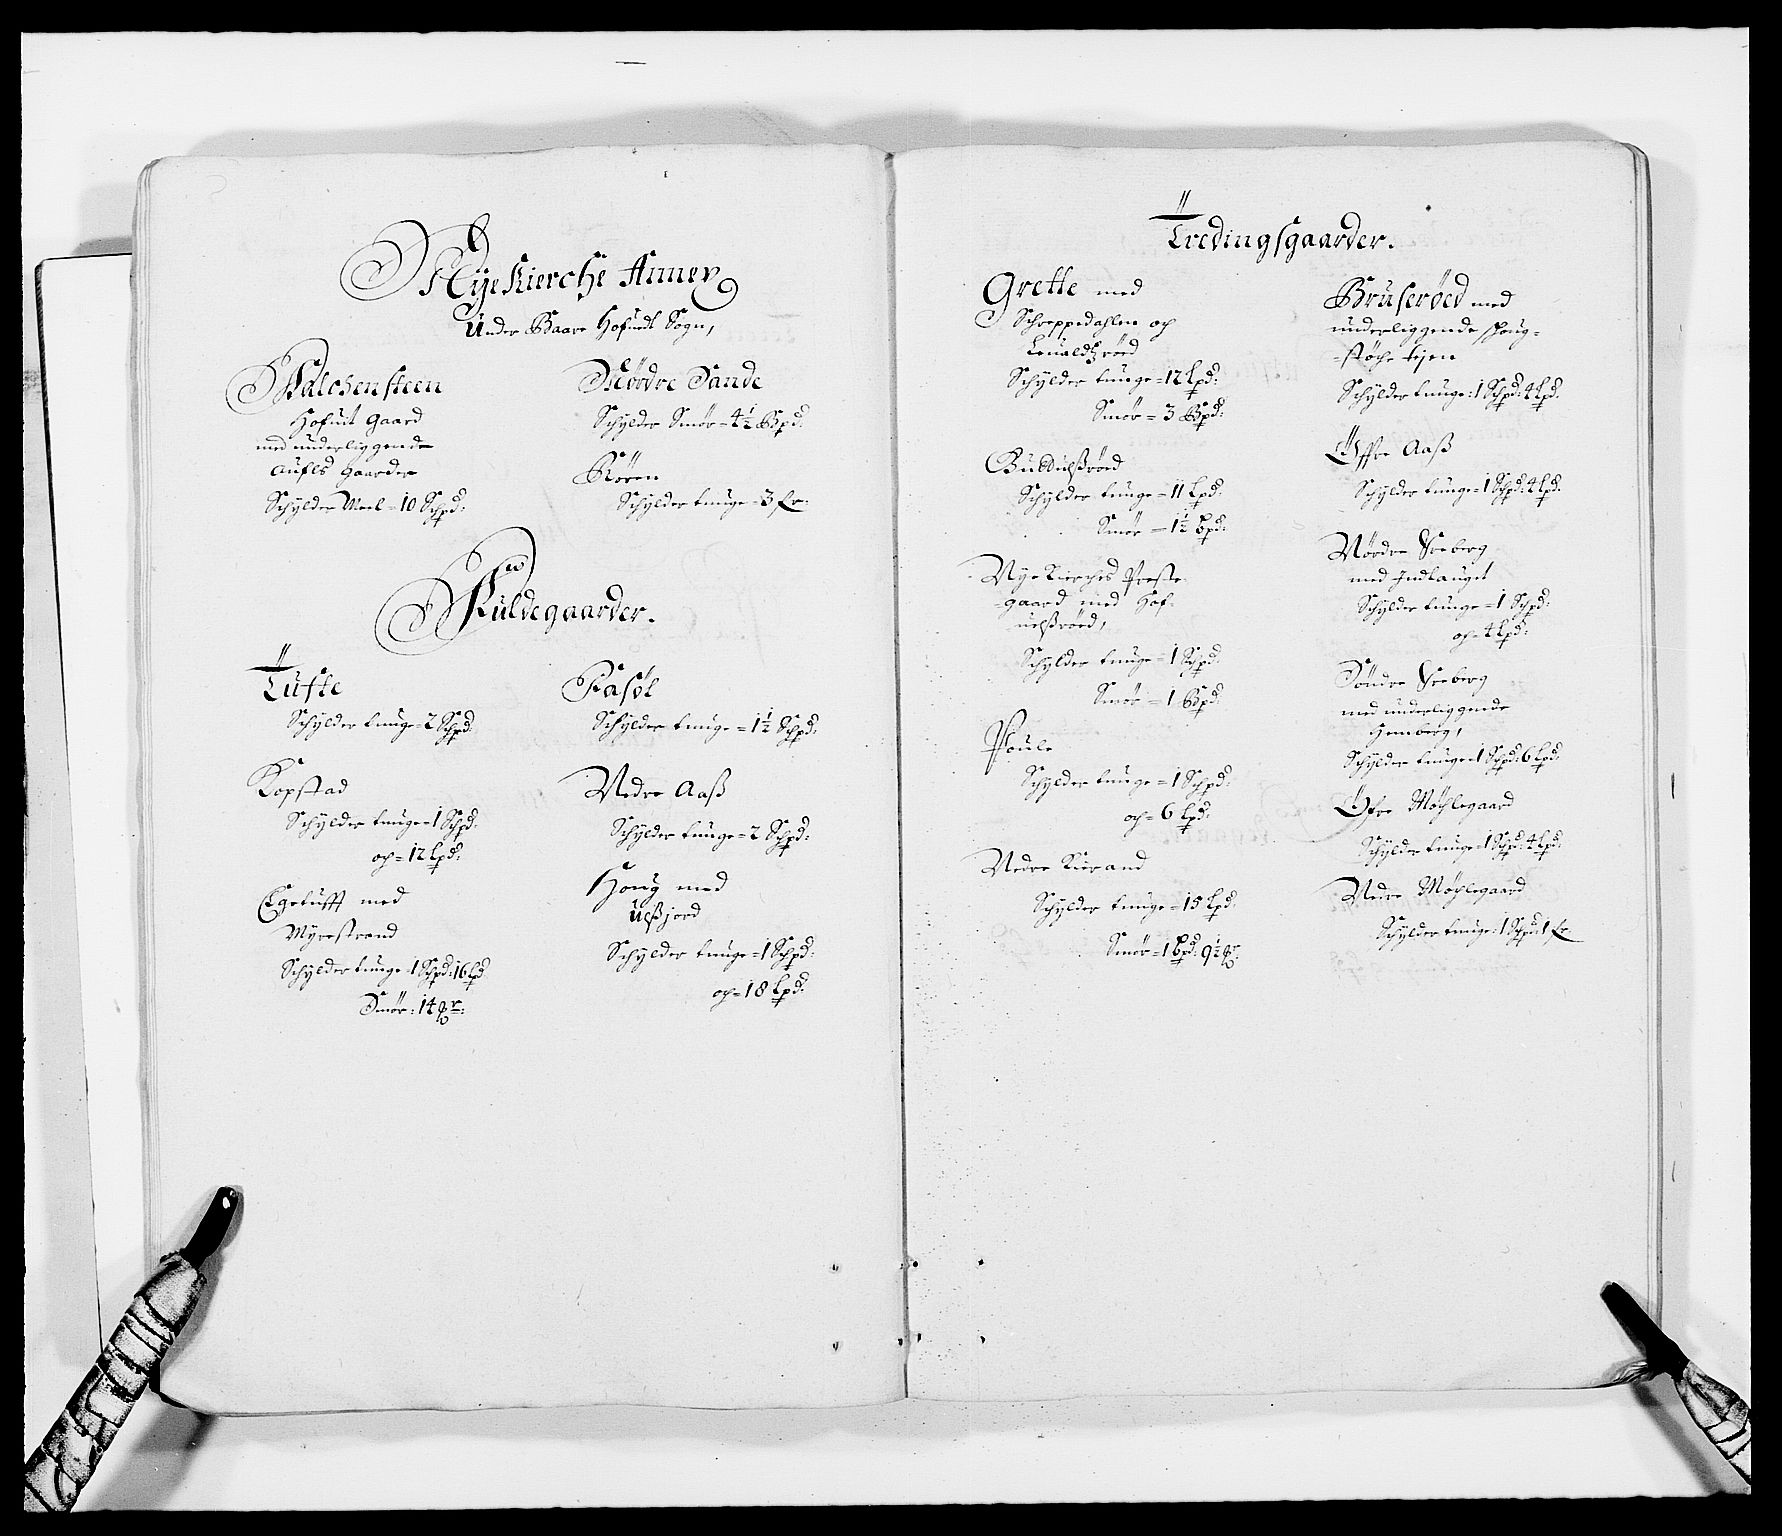 Nyekierche Annex
Under Baare Hofuidt Sogn,
Falchensteen
Hofuit Gaard
med underliggende
Aufls Gaarder
Schylder Meel = 10 Schpd:
Nordre Sande
Schylder Smör = 4½ Bpd:
Rören
Schylder tunge = 3 fr:
Fuldegaarder.
Tufte
Schylder tunge = 2 Schpd:
Kopstad
Schylder tunge = 1 Schpd:
och = 12 Lpd:
Egetufft med
Myrestrand
Schylder tunge = 1 Schpd: 16 Lpd
Smör: 14 mr:
Fasøl
Schylder tunge = 1½ Schpd:
Nedre Aaß
Schylder tunge = 2 Schpd:
Houg med
Ulßjord
Schylder tunge = 1 Schpd:
och = 18 Lpd:
Tredingsgaarder.
Grette med
Schreppedahlen och
Schylder tunge = 12 Lpd:
Smör = 3 Bpd:
Buldulßröed
Schylder tunge = 11 Lpd:
Smör = 1½ Bpd:
Nye Kierches Preste-
gaard med Hof-
uelßröed,
Schylder tunge = 1 Schpd:
Smör = 1 Bpd:
Poule
Schylder tunge = 1 Schpd:
och = 6 Lpd:
Nedre Kierand
Schylder tunge = 15 Lpd:
Smör = 1 Bpd: 9½ mr:
Bruserøed med
underliggende schoug-
støche Ejen
Schylder tunge: 1 Schpd: 4 Lpd:
Öffre Aaß
Schylder tunge = 1 Schpd: 4 Lpd:
Nördre Seeberg
med Indlauget
Schylder tunge = 1 Schpd:
och = 4 Lpd:
Söndre Seeberg
med underliggende
Hemberg,
Schylder tunge = 1 Schpd: 6 Lpd:
Öfre Möhlegaard
Schylder tunge = 1 Schpd: 4 Lpd:
Nedre Möhlegaard
Schylder tunge: 1 Schpd: 1 fr: